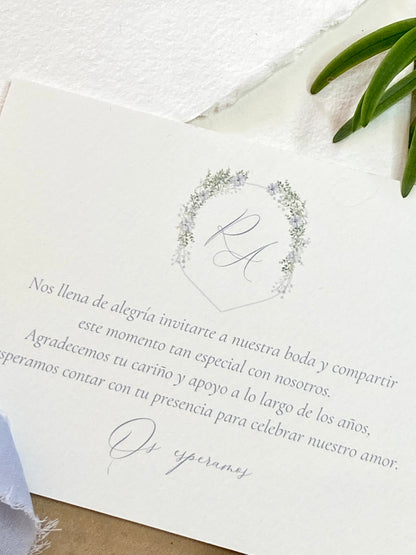 RA
Nos llena de alegría invitarte a nuestra boda y compartir
este momento tan especial con nosotros.
Agradecemos tu cariño y apoyo a lo largo de los años,
esperamos contar con tu presencia para celebrar nuestro amor.
Os esperamos